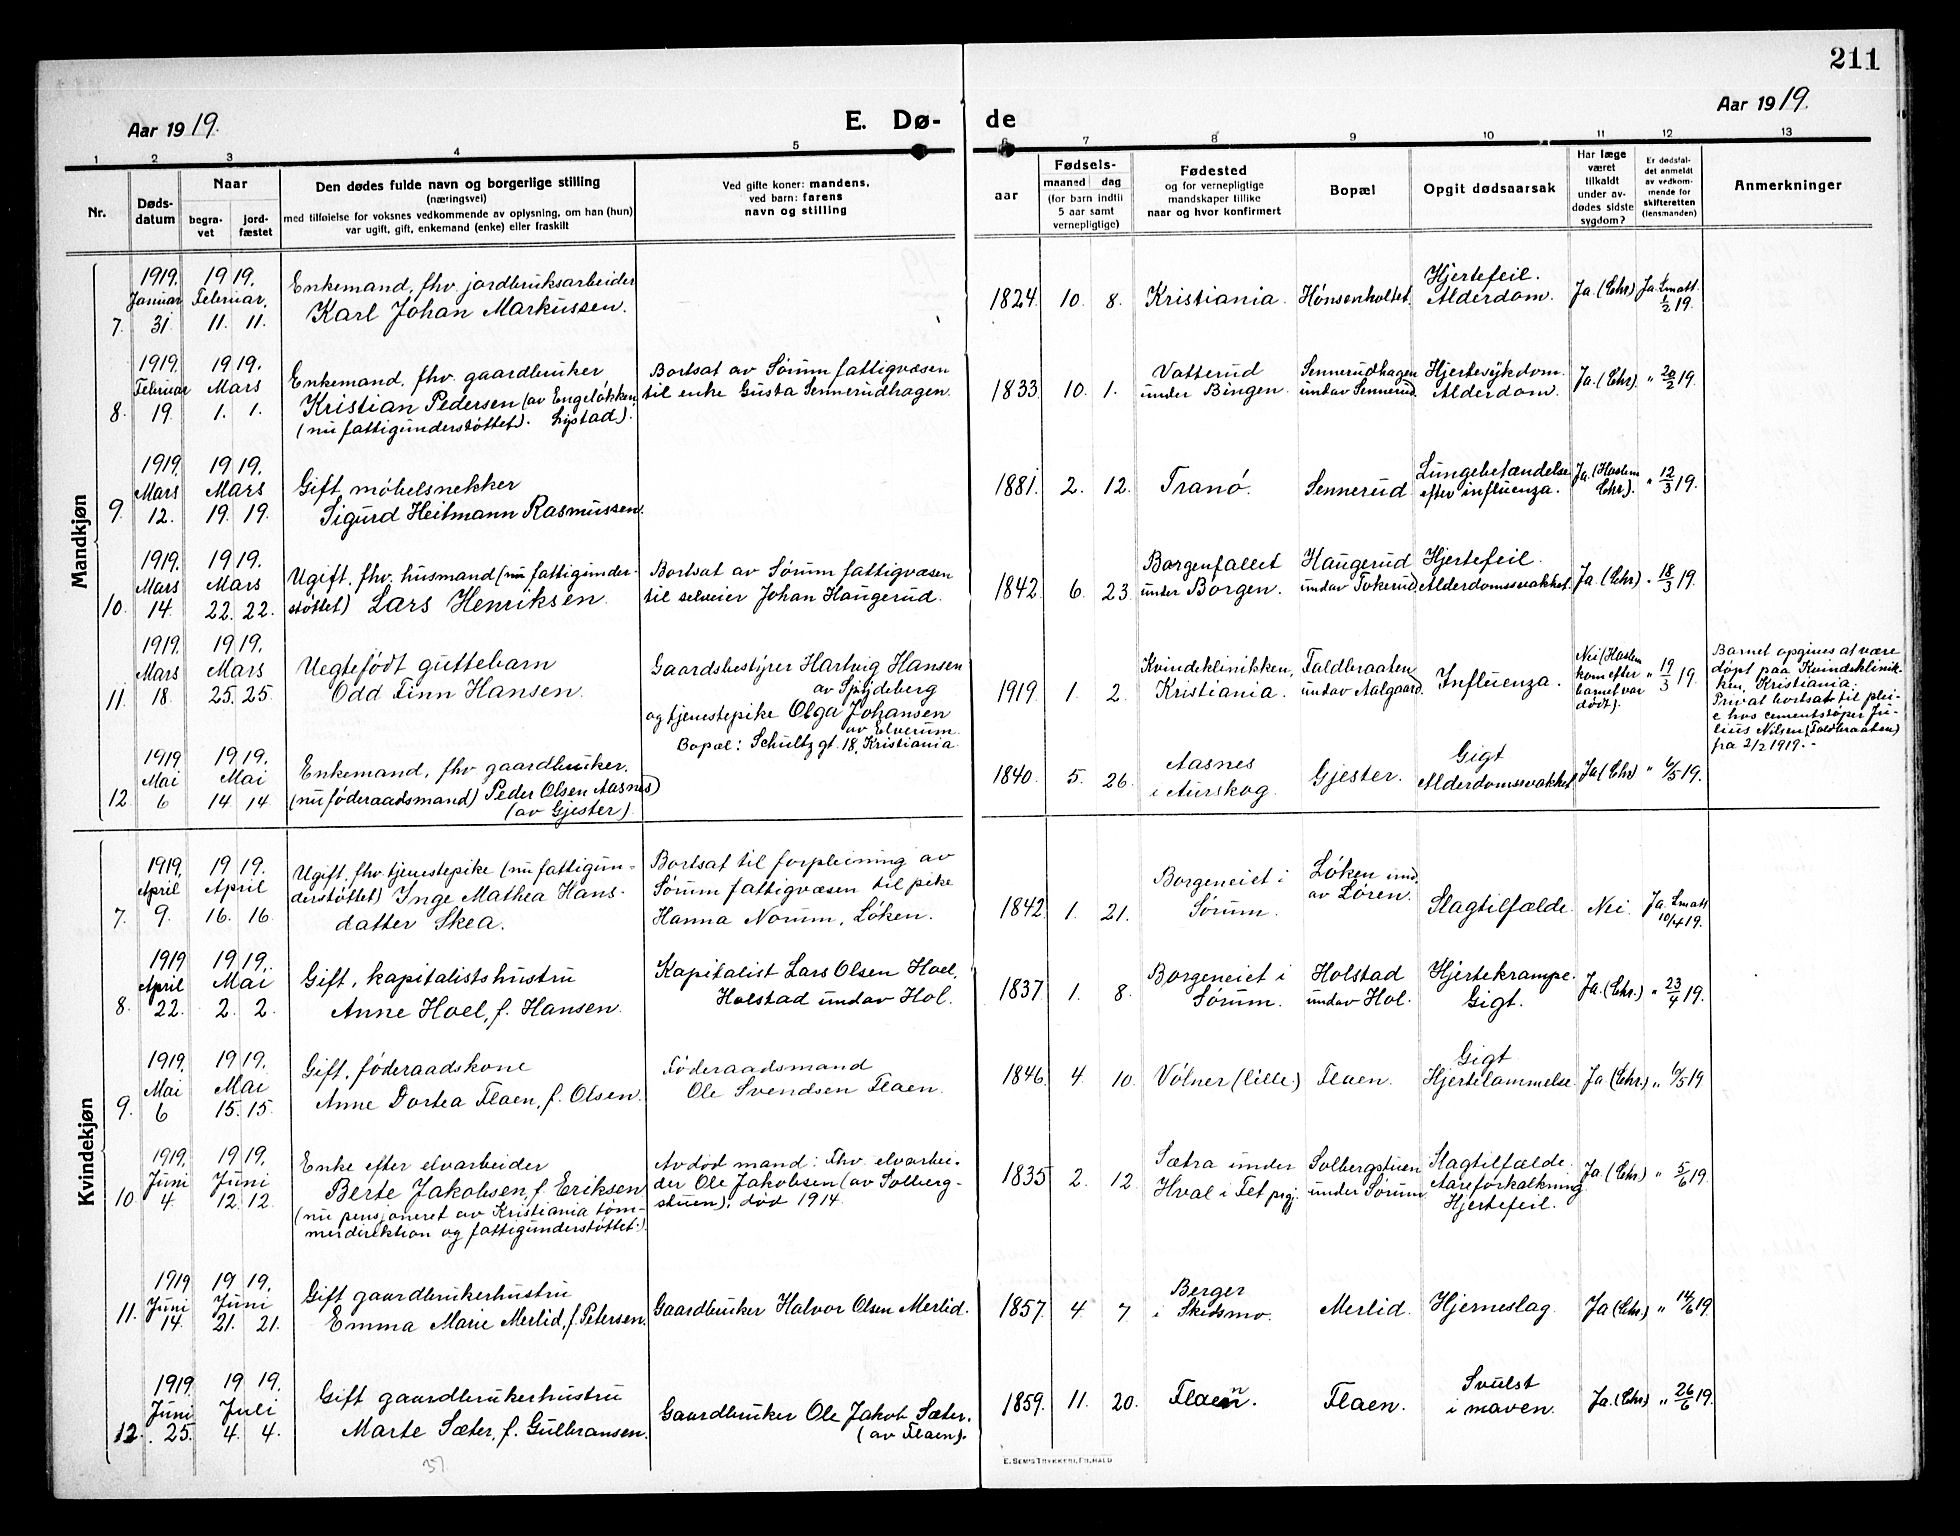 211
Aar 1919.
E. Dø-
de
Aar 1919.
1 2 3 4 5 6 7 8 9 10 11 12 13
Nr.
Døds-
datum
Naar
begra-
vet
jord-
fæstet
Den dødes fulde navn og borgerlige stilling
(næringsvei)
med tilføielse for voksnes vedkommende av oplysning, om han (hun)
var ugift, gift, enkemand (enke) eller fraskilt
Ved gifte koner: mandens,
ved barn: farens
navn og stilling
aar
Fødsels-
maaned dag
(for barn indtil
5 aar samt
vernepligtige)
Fødested
og for vernepligtige
mandskaper tillike
naar og hvor konfirmert
Bopæl
Opgit dødsaarsak
Har læge
været
tilkaldt
under av-
dødes sidste
sygdom?
Er dødsfal-
det anmeldt
av vedkom-
mende for
skifteretten
(lensmanden)
Anmerkninger
Mandkjøn
7.
1919.
Januar
31.
19 19.
Februar.
11. 11.
Enkemand, fhv. jordbruksarbeider
Karl Johan Markussen.
1824. 10. 8.
Kristiania.
Hønsenholtet.
Hjertefeil.
Alderdom.
Ja (Chr)
Ja. Smatt.
1/2 19.
8.
1919.
Februar
19.
19 19.
Mars
1. 1.
Enkemand, fhv. gaardbruker
Kristian Pedersen (av Engeløkken
(nu fattigunderstøttet). Lystad).
Bortsat av Sørum fattigvæsen
til enke Gusta Sennerudhagen.
1833. 10. 1.
Vatterud
under Bingen.
Sennerudhagen
undav Sennerud.
Hjertesykdom.
Alderdom.
Ja. (Chr).
" 20/2 19.
9.
1919.
Mars
12.
19 19.
Mars
19. 19.
Gift møbelsnekker
Sigurd Heitmann Rasmussen.
1881. 2. 12.
Tranø.
Sennerud.
Lungebetændelse
efter influenza.
Ja. (Haslem
Chr).
" 12/3 19.
10.
1919.
Mars
14.
19 19.
Mars
22. 22.
Ugift, fhv. husmand (nu fattigunder-
støttet) Lars Henriksen.
Bortsat av Sørum fattigvæsen
til selveier Johan Haugerud.
1842. 6. 23.
Borgenfallet
under Borgen.
Haugerud
undav Tokerud.
Hjertefeil.
Alderdomssvakket.
Ja (Chr)
" 18/3 19.
11.
1919.
Mars
18.
19 19.
Mars
25. 25.
Uegtefødt guttebarn
Odd Finn Hansen.
Gaardsbestyrer Hartvig Hansen
av Spydeberg
og tjenestepike Olga Johansen
av Elverum.
Bopæl: Schultzgt. 18, Kristiania.
1919. 1. 2.
Kvindeklinikken,
Kristiania.
Faldbraaten
undav Aalgaard.
Influenza.
Nei (Haslem
kom efter
barnet var
dødt).
" 19/3 19.
Barnet opgives at være
døpt paa Kvindeklinik-
ken, Kristiania.
Privat bortsatt til plei-
e hos cementstøper Ju-
lius Nilsen (Faldbraaten)
fra 2/2 1919. -
12.
1919
Mai
6
19 19.
Mai
14 14.
Enkemand, fhv gaardbruker,
(nu føderaadsmand) Peder Olsen Aasnes)
(av Gjester)
1840. 5. 26.
Aasnes
i Aurskog.
Gjester.
Gigt
Alderdomssvakket
Ja (Chr)
" 6/5 19.
Kvindekjøn
7.
1919.
April
9.
19 19.
April
16. 16.
Ugift, fhv tjenestepike (nu fattigun-
derstøttet) Inge Mathea Hans-
datter Skea.
Bortsat til forpleining av
Sørum fattigvæsen til pike
Hanna Norum, Løken.
1842. 1. 21.
Borgeneiet i
Sørum.
Løken und.
av Løren.
Slagtilfælde.
Nei.
Ja. Smatt
10/4 19.
8.
1919
April
22.
19 19.
Mai
2. 2.
Gift, kapitalistshustru
Anne Hoel, f. Hansen.
Kapitalist Lars Olsen Hoel,
Holstad undav Hol.
1837. 1. 8.
Borgeneiet i
Sørum.
Holstad
undav Hol.
Hjertekrampe.
Gigt.
Ja. (Chr.)
" 23/4 19.
9.
1919.
Mai
6
19 19.
Mai
15. 15.
Gift, føderaadskone
Anne Dortea Flaen, f. Olsen.
Føderaadsmand
Ole Svendsen Flaen.
1846. 4. 10.
Vølner (Lille.)
Flaen.
Gigt
Hjertelammelse.
Ja (Chr.)
" 6/5 19
10.
1919.
Juni
4.
19 19.
Juni
12. 12.
Enke efter elvarbeider
Berte Jakobsen, f. Eriksen
(nu pensjoneret av Kristiania tøm-
merdirektion og fattigunderstøttet.)
Avdød mand: Fhv. elvarbei-
der Ole Jakobsen (av Solberg-
stuen), død 1914.
1835. 2. 12.
Sætra under
Hval i Fet prgj.
Solbergstuen
under Sørum.
Slagtilfælde.
Aareforkalkning.
Hjertefeil.
Ja (Chr)
" 5/6 19.
11.
1919
Juni
14.
19 19.
Juni
21. 21.
Gift gaardbrukerhustru
Emma Marie Merlid, f. Petersen.
Gaardbruker Halvor Olsen Merlid.
1857. 4 7.
Berger
i Skedsmo.
Merlid.
Hjerneslag.
Ja (Chr)
" 14/6 19.
12.
1919
Juni
25.
19 19.
Juli
4. 4.
Gift gaardbrukerhustru
Marte Sæter, f. Gulbransen.
Gaardbruker Ole Jakob Sæter.
(av Flaen).
1859. 11. 20.
Flaen.
Flaen.
Svulst
i maven.
Ja. (Chr)
" 26/6 19.
37
E. SEM'S TRYKKERI, FR.HALD